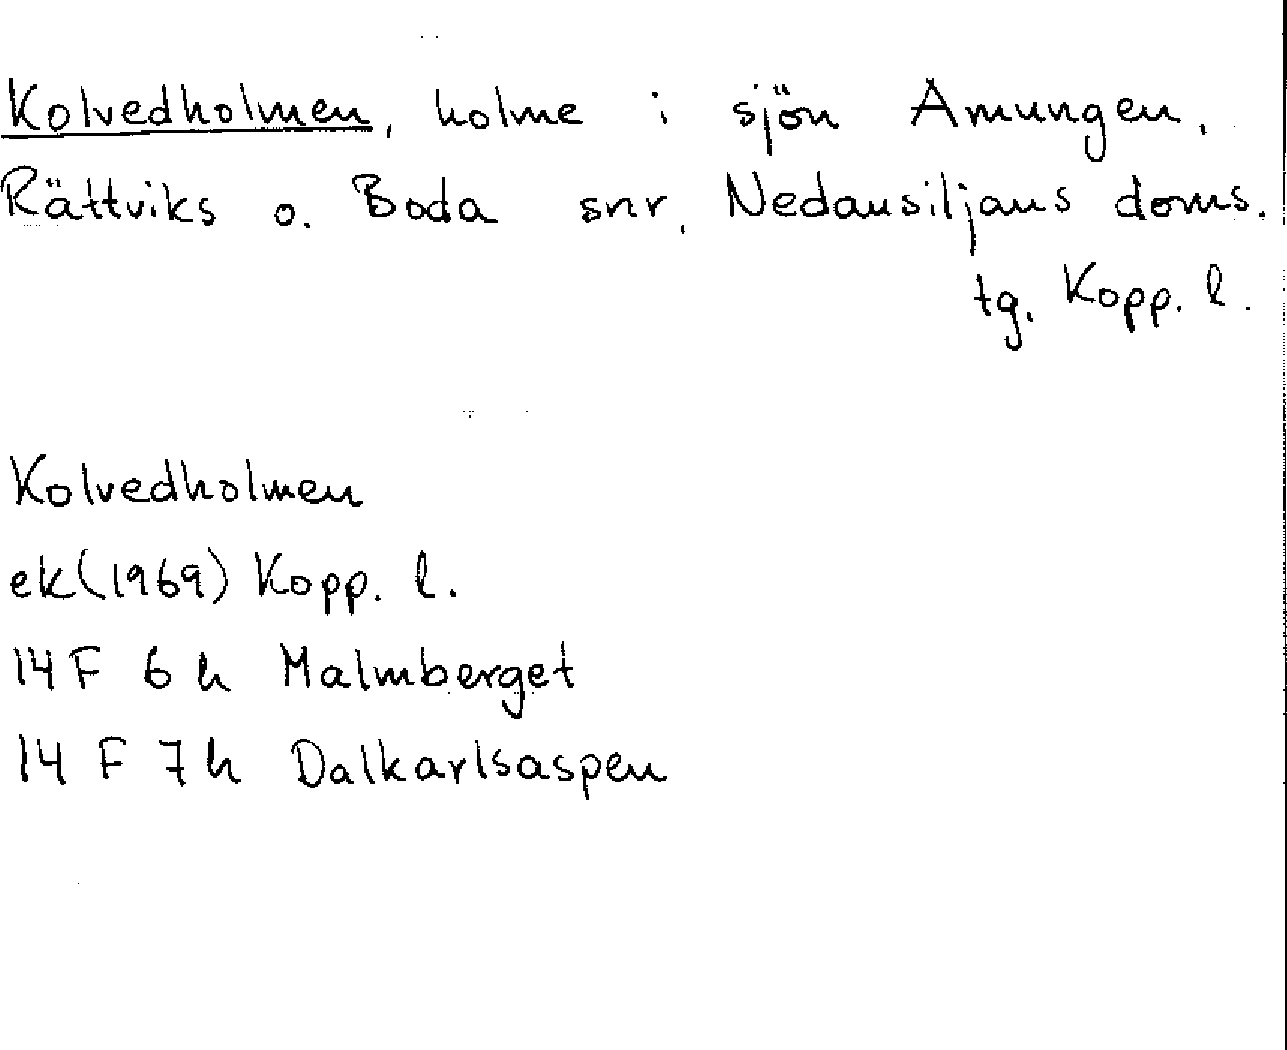 Kolvedholmen, holme i sjön Amungen,
Rättviks o. Boda snr, Nedansiljans doms.
tg. Kopp. l.
Kolvedholmen
ek(1969) Kopp. l.
14 F 6 h Malmberget
14 F 7 h Dalkarlsaspen